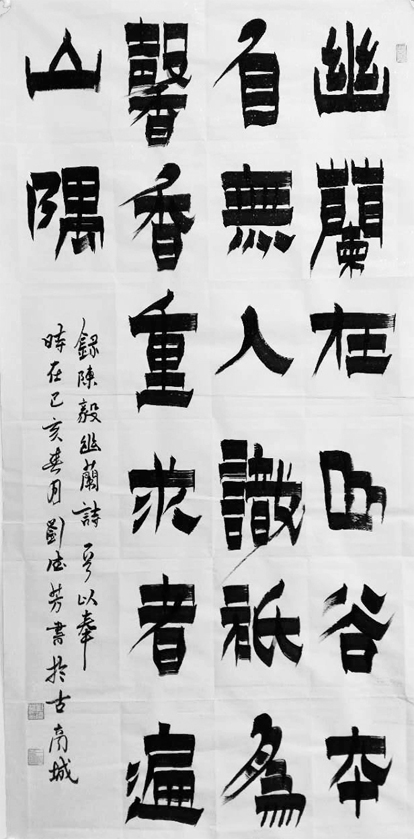 幽蘭在山谷本
自無人識祇為
馨香重求者遍
山隅
錄陳毅幽蘭詩一首以奉
時在己亥春月劉德芳書於古商城